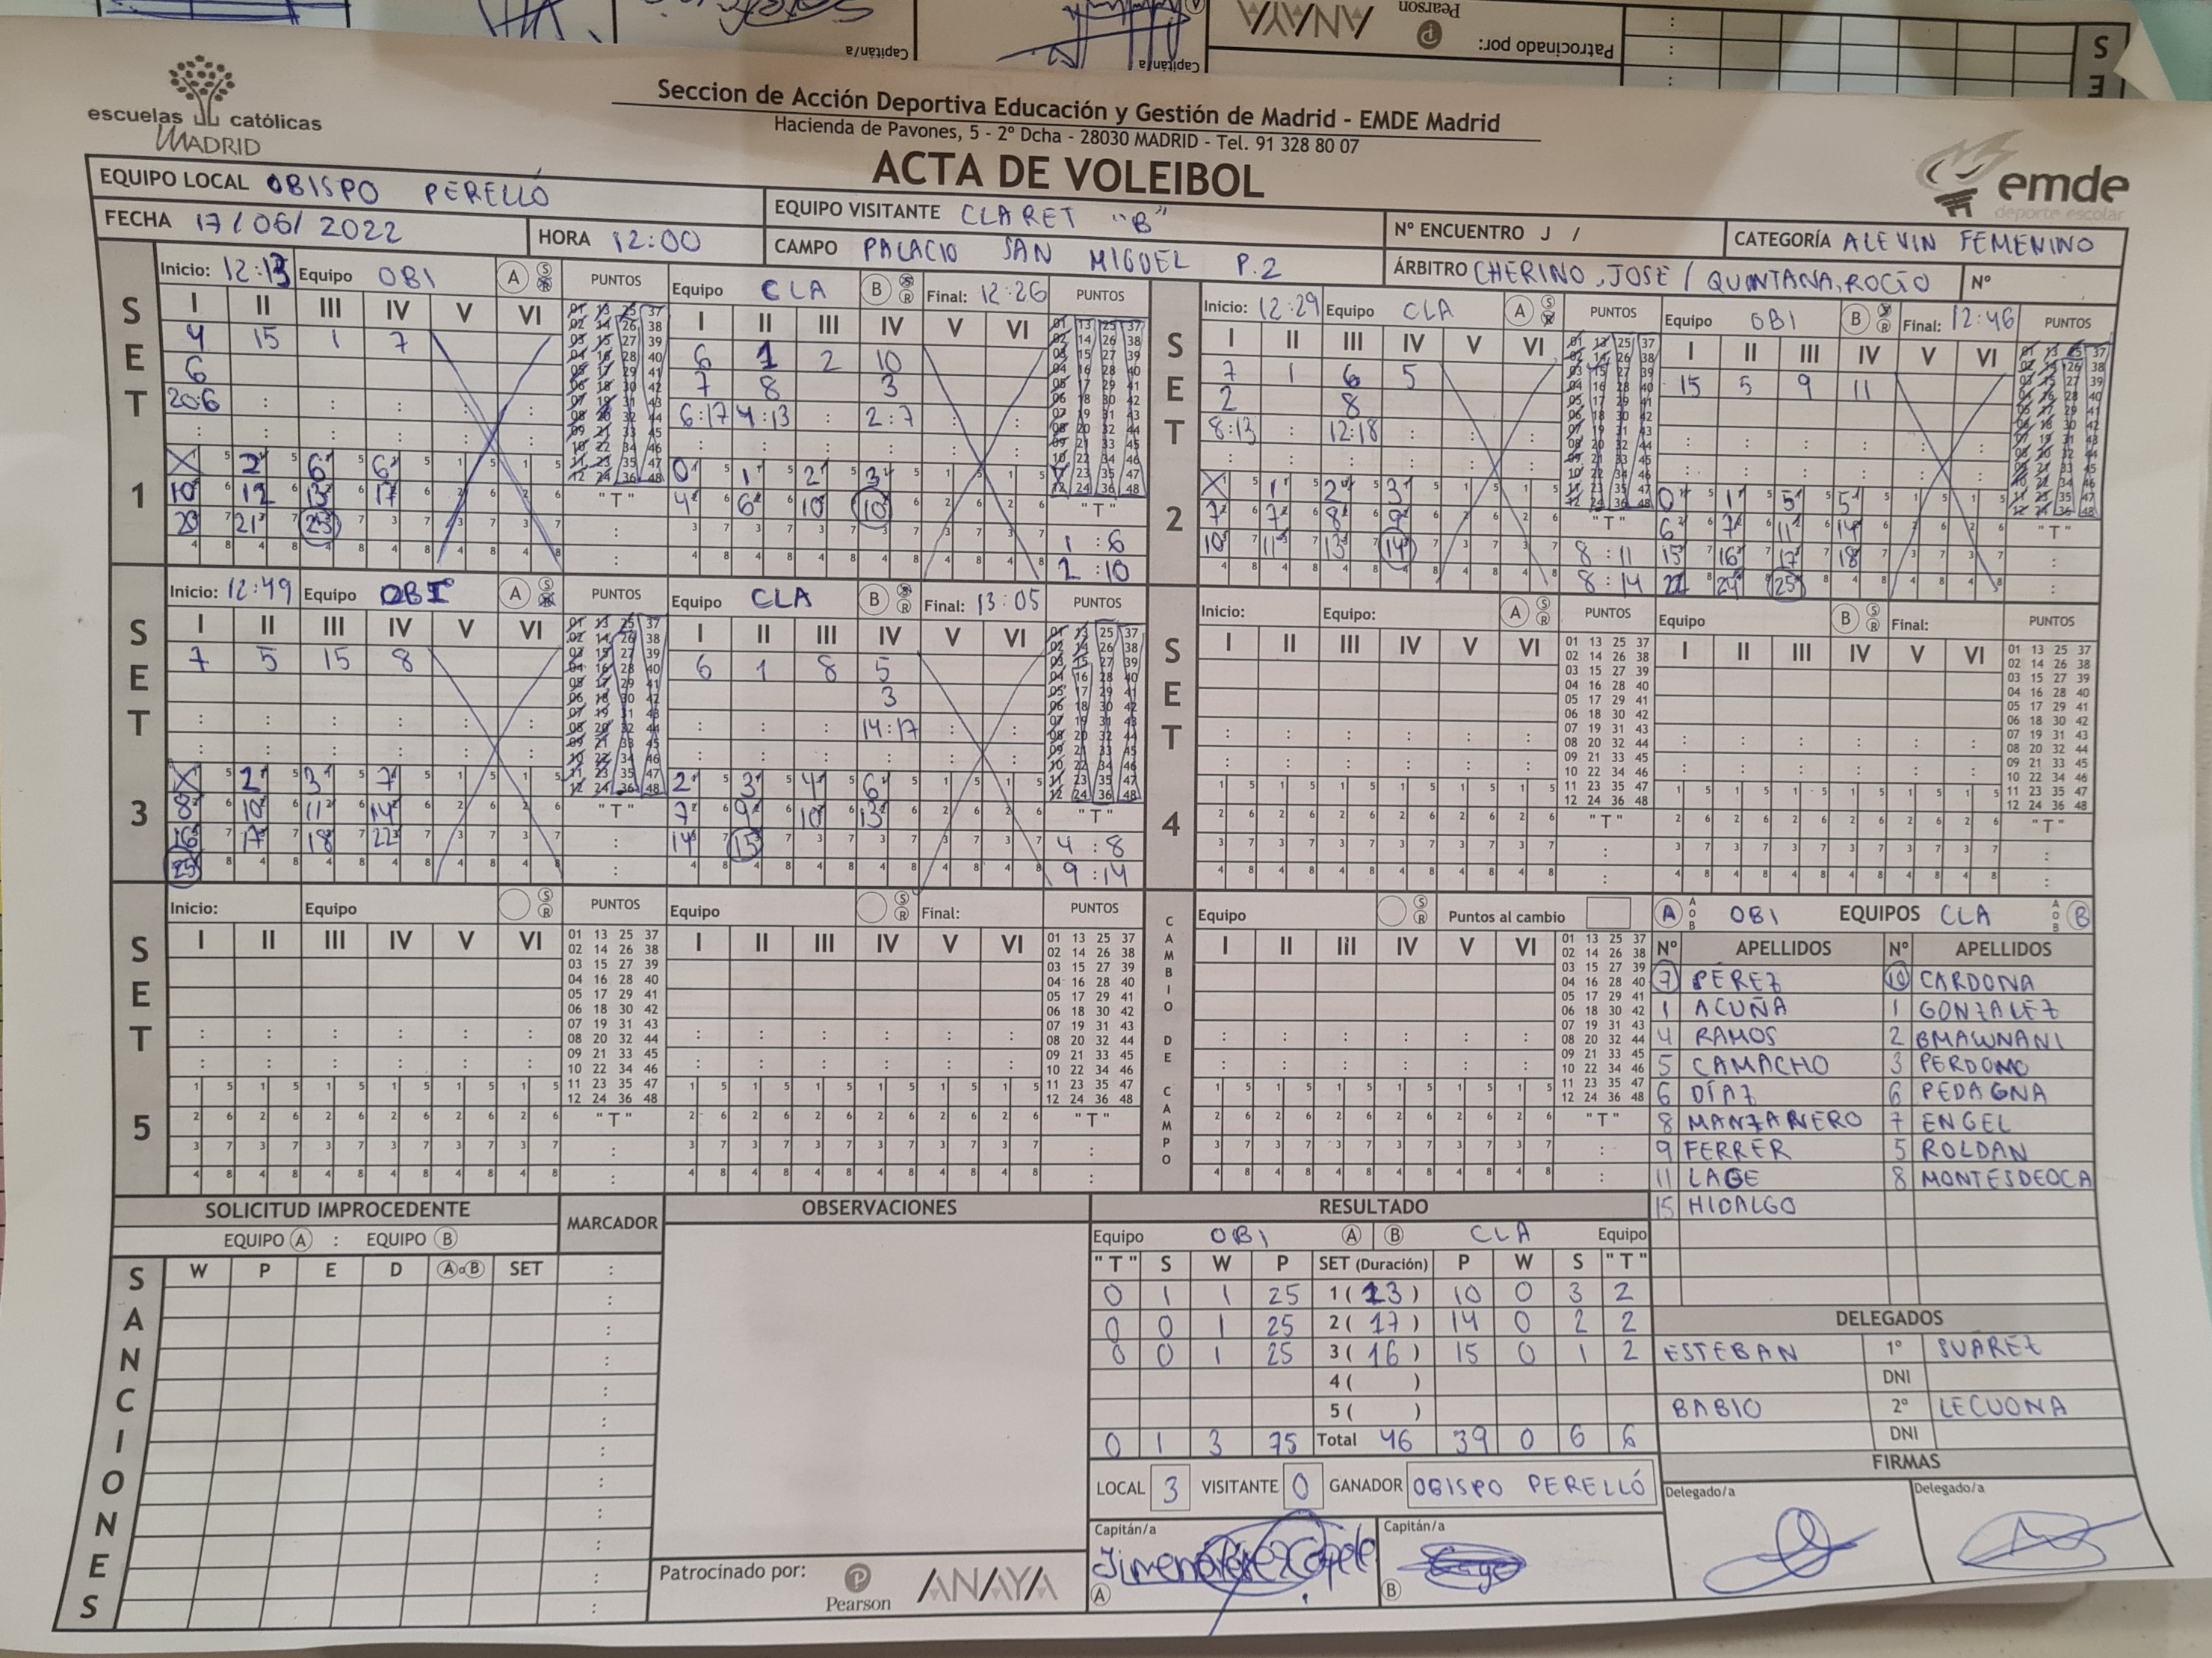 Capitán/a
Capitán/a
ANAYA
Pearson
Patrocinado por:
S
E
escuelas católicas
MADRID
Seccion de Acción Deportiva Educación y Gestión de Madrid - EMDE Madrid
Hacienda de Pavones, 5 - 2º Dcha - 28030 MADRID - Tel. 91 328 80 07
ACTA DE VOLEIBOL
emde
deporte escolar
EQUIPO LOCAL OBISPO PERELLÓ
EQUIPO VISITANTE CLARET "B"
Nº ENCUENTRO J /
CATEGORÍA ALEVIN FEMENINO
FECHA 17/06/2022
HORA 12:00
CAMPO PALACIO SAN MIGUEL P.2
ÁRBITRO CHERINO, JOSE / QUINTANA, ROCIO
Nº
SET 1
Inicio: 12:13 Equipo OBI A S R PUNTOS
I II III IV V VI
4 15 1 7
6
20:6
X 2 6 6
10 12 13 17
20 21 25
"T"
Equipo CLA B S R Final: 12:26 PUNTOS
I II III IV V VI
6 1 2 10
7 8 3
6:17 4:13 : 2:7
0 1 2 3
4 6 10 10
"T"
1:6
2:10
SET 2
Inicio: 12:29 Equipo CLA A S R PUNTOS
I II III IV V VI
7 1 6 5
2 8
8:13 : 12:18
X 1 2 3
7 7 8 9
10 11 13 14
"T"
8:11
8:14
Equipo OBI B S R Final: 12:46 PUNTOS
I II III IV V VI
15 5 9 11
0 1 5 5
6 7 11 14
15 16 17 18
22 24 25
"T"
SET 3
Inicio: 12:49 Equipo OBI A S R PUNTOS
I II III IV V VI
7 5 15 8
X 2 3 7
8 10 11 14
16 17 18 22
25
"T"
Equipo CLA B S R Final: 13:05 PUNTOS
I II III IV V VI
6 1 8 5
3
14:17
2 3 4 6
7 9 10 13
14 15
"T"
4:8
9:14
SET 4
Inicio: Equipo: A S R PUNTOS
I II III IV V VI
01 13 25 37
02 14 26 38
03 15 27 39
04 16 28 40
05 17 29 41
06 18 30 42
07 19 31 43
08 20 32 44
09 21 33 45
10 22 34 46
11 23 35 47
12 24 36 48
"T"
Equipo B S R Final: PUNTOS
I II III IV V VI
"T"
SET 5
Inicio: Equipo S R PUNTOS
I II III IV V VI
"T"
Equipo S R Final: PUNTOS
I II III IV V VI
"T"
CAMBIO DE CAMPO
Equipo S R Puntos al cambio
I II III IV V VI
"T"
A OBI EQUIPOS CLA B
Nº APELLIDOS Nº APELLIDOS
7 PÉREZ 10 CARDONA
1 ACUÑA 1 GONZALEZ
4 RAMOS 2 BMAWNANI
5 CAMACHO 3 PERDOMO
6 DÍAZ 6 PEDAGNA
8 MANZANERO 7 ENGEL
9 FERRER 5 ROLDAN
11 LAGE 8 MONTESDEOCA
15 HIDALGO
DELEGADOS
ESTEBAN 1º SUÁREZ
DNI
BABIO 2º LECUONA
DNI
FIRMAS
Delegado/a
Delegado/a
SOLICITUD IMPROCEDENTE
EQUIPO A : EQUIPO B
MARCADOR
SANCIONES
W P E D A o B SET
OBSERVACIONES
Patrocinado por: Pearson ANAYA
RESULTADO
Equipo OBI A B CLA Equipo
"T" S W P SET (Duración) P W S "T"
0 1 1 25 1 (13) 10 0 3 2
0 0 1 25 2 (17) 14 0 2 2
0 0 1 25 3 (16) 15 0 1 2
4 ( )
5 ( )
0 1 3 75 Total 46 39 0 6 6
LOCAL 3 VISITANTE 0 GANADOR OBISPO PERELLÓ
Capitán/a
A
Capitán/a
B